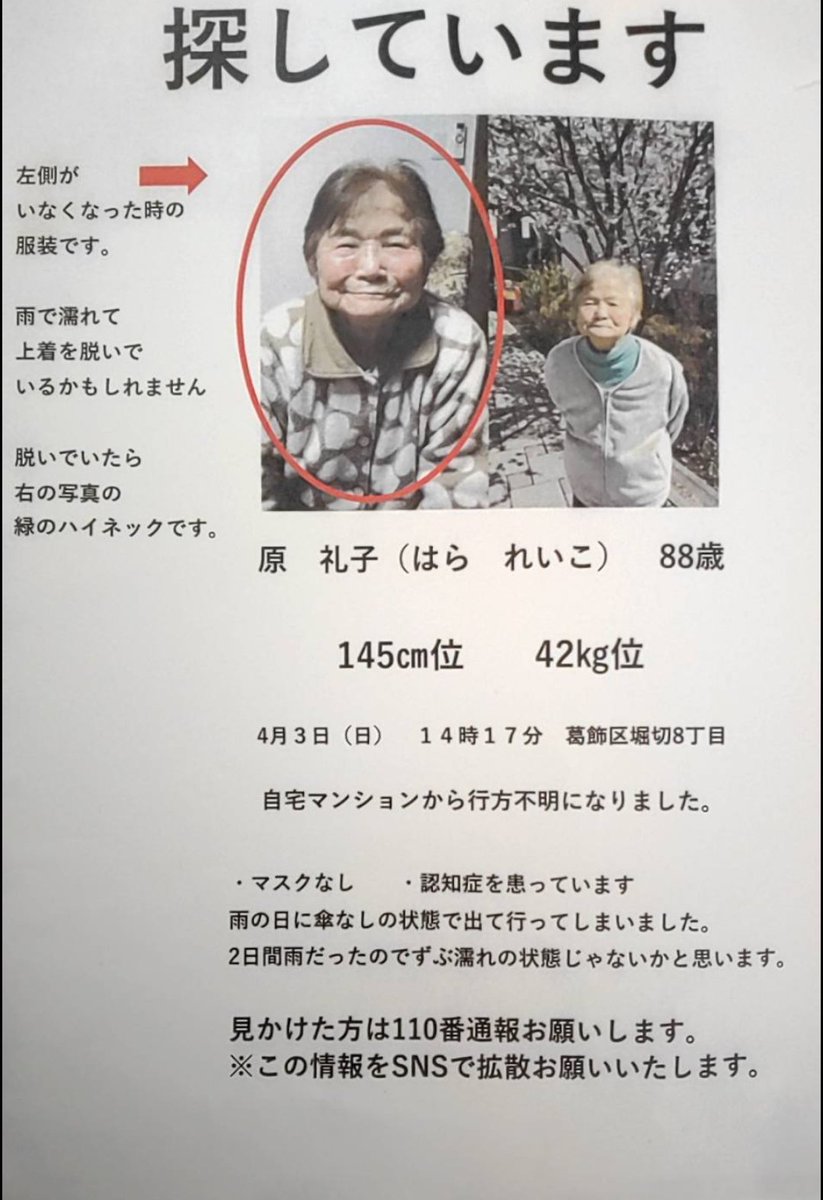 探しています
左側が
いなくなった時の
服装です。
雨で濡れて
上着を脱いで
いるかもしれません
脱いでいたら
右の写真の
緑のハイネックです。
原　礼子（はら　れいこ）　88歳
145㎝位　　42㎏位
4月３日（日）　１４時１７分　葛飾区堀切8丁目
自宅マンションから行方不明になりました。
・マスクなし　　・認知症を患っています
雨の日に傘なしの状態で出て行ってしまいました。
2日間雨だったのでずぶ濡れの状態じゃないかと思います。
見かけた方は110番通報お願いします。
※この情報をSNSで拡散お願いいたします。